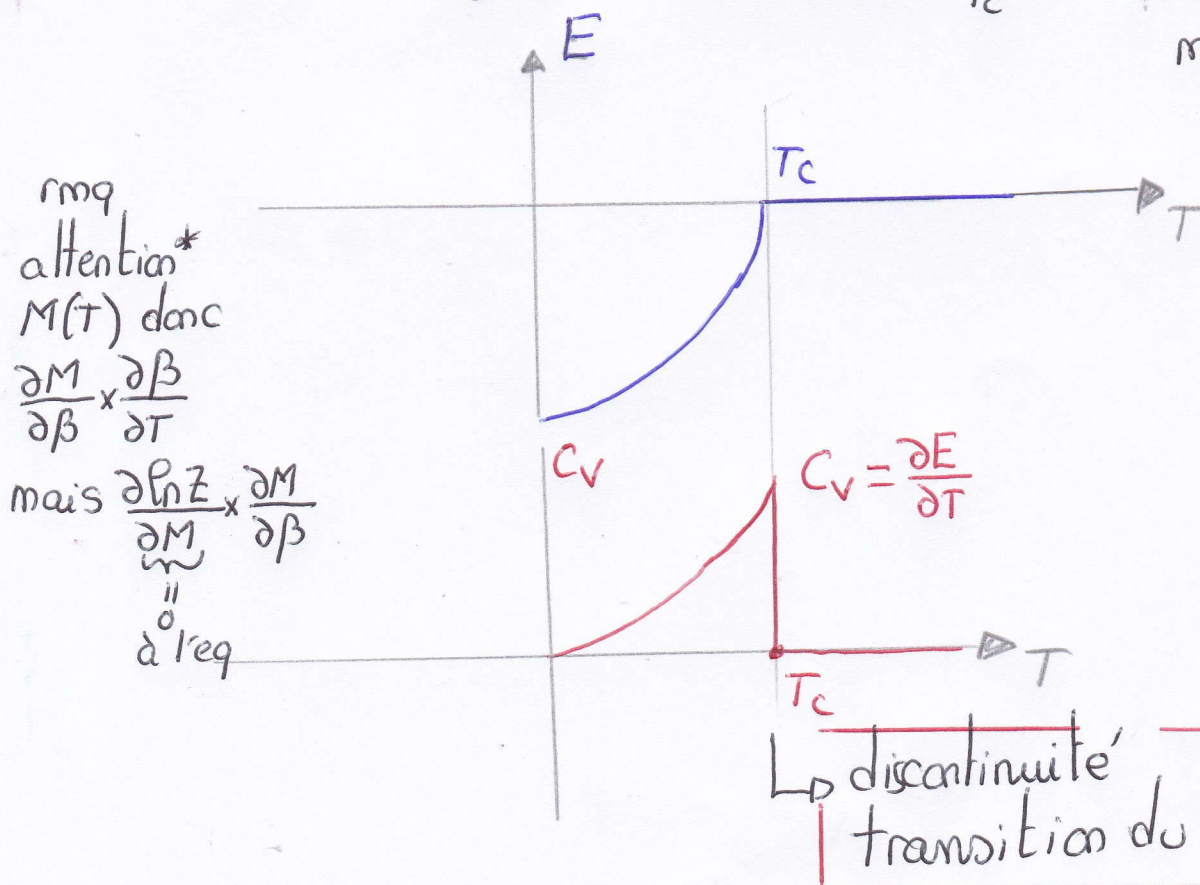 E
Tc
T
rmq
attention*
M(T) donc
∂M/∂β × ∂β/∂T
mais ∂lnZ/∂M × ∂M/∂β
=
0
à l'eq
Cv
Cv = ∂E/∂T
T
Tc
↳ discontinuité
transition du